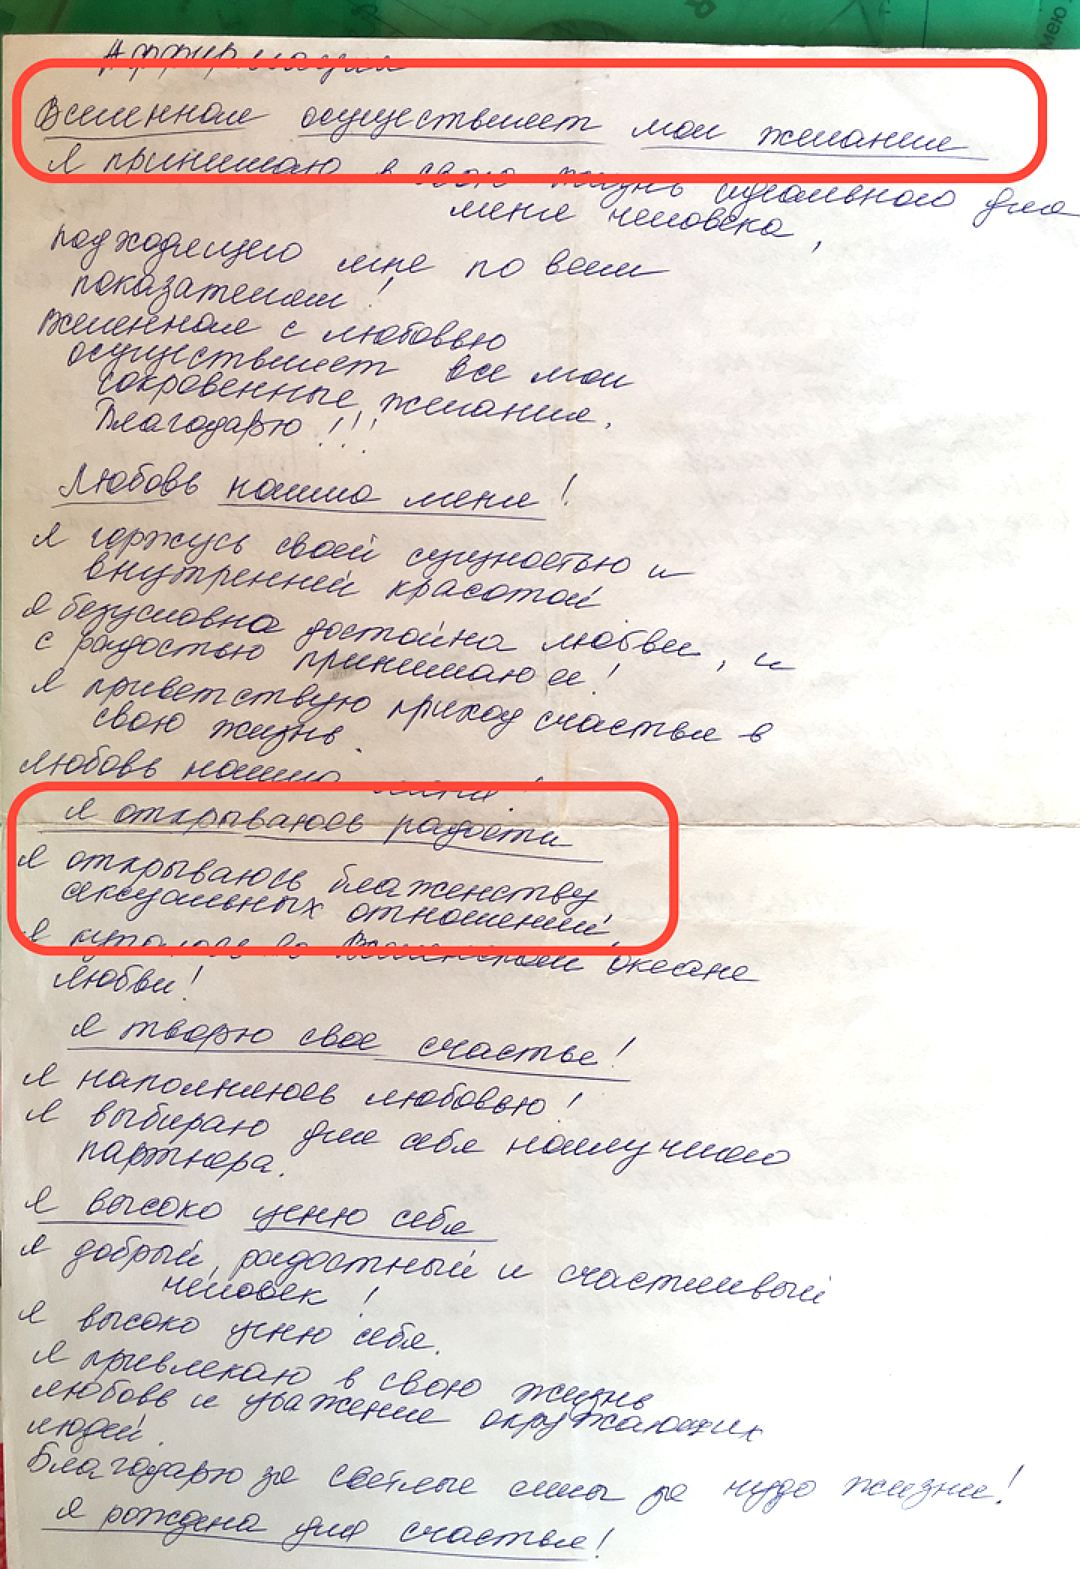 Аффирмация
Вселенная осуществляет мои желания
Я принимаю в свою жизнь идеального для
меня человека,
подходящего мне по всем
показателям!
Вселенная с любовью
осуществляет все мои
сокровенные желания.
Благодарю!!!
Любовь нашла меня!
Я горжусь своей сущностью и
внутренней красотой
Я безусловна достойна любви, и
с радостью принимаю ее!
Я приветствую приход счастья в
свою жизнь.
Любовь нашла меня!
Я открываюсь радости
Я открываюсь блаженству
сексуальных отношений
Я купаюсь во Вселенском океане
любви!
Я творю свое счастье!
Я наполняюсь любовью!
Я выбираю для себя наилучшего
партнера.
Я высоко ценю себя
Я добрый, радостный и счастливый
человек!
Я высоко ценю себя.
Я привлекаю в свою жизнь
любовь и уважение окружающих
людей.
Благодарю за светлые силы за чудо жизни!
Я рождена для счастья!